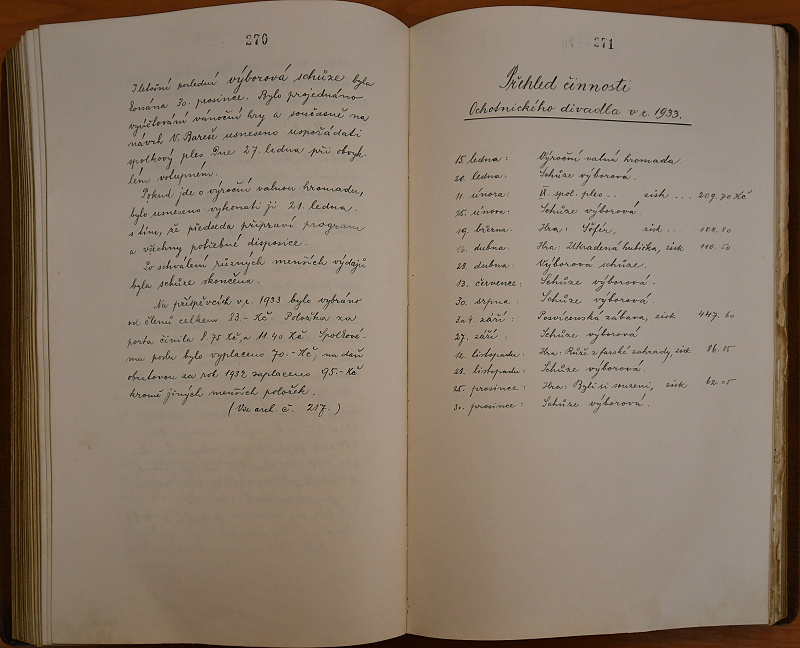 270
Zdejší poslední výborová schůze byla
konána 30. prosince. Bylo projednáno
vyúčtování vánoční hry a současně na
návrh V. Bareše usneseno uspořádati
spolkový ples dne 27. ledna při obvyk-
lém vstupném.
Pokud jde o výroční valnou hromadu,
bylo usneseno vykonati ji 21. ledna.
s tím, že předseda připraví program
a všechny potřebné disposice.
Po schválení různých menších výdajů
byla schůze skončena.
Na příspěvcích v r. 1933 bylo vybráno
od členů celkem 83.- Kč. Položka za
porta činila 8.75 Kč, a 11.40 Kč. Spolkové-
mu poslu bylo vyplaceno 70.- Kč, na daň
obratovou za rok 1932 zaplaceno 95.- Kč
kromě jiných menších položek.
(Viz arch. č. 217.)
271
Přehled činnosti
Ochotnického divadla v r. 1933.
15. ledna: Výroční valná hromada
20. ledna: Schůze výborová.
11. února: IX. spol. ples ... zisk ... 209.70 Kč
25. února: Schůze výborová
19. března: Hra: Šofér, zisk ... 104.80
dubna: Hra: Ukradená hubička, zisk 110.50
28. dubna: Výborová schůze.
13. červenec: Schůze výborová.
30. srpna: Schůze výborová.
3 a 4. září: Posvícenská zábava, zisk 447.60
27. září: Schůze výborová
12. listopadu: Hra: Růže z farské zahrady, zisk 86.85
28. listopadu: Schůze výborová.
25. prosince: Hra: Byli si souzeni, zisk 62.05
30. prosince: Schůze výborová.